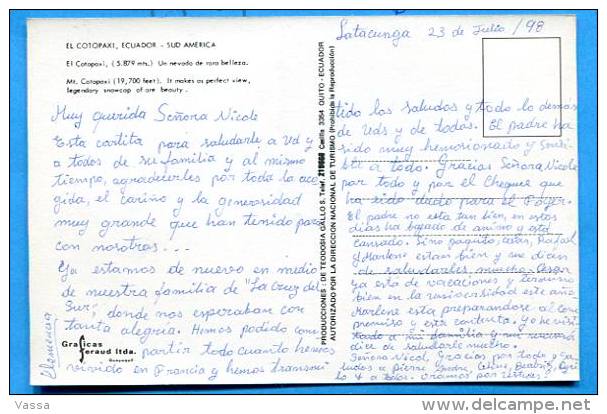 EL COTOPAXI, ECUADOR - SUD AMERICA
El Cotopaxi, (5.879 mts.) Un nevado de rara belleza.
Mt. Cotopaxi (19,700 feet). It makes as perfect view,
legendary snowcap of are beauty.
Muy querida Señora Nicole
Esta cartita para saludarle a Vd y a
todos de su familia y al mismo
tiempo, agradecerles por toda la aco-
gida, el cariño y la generosidad
muy grande que han tenido para
con nosotras...
Ya estamos de nuevo en medio
de nuestra familia de "La Cruz del
Sur", donde nos esperaban con
tanta alegria. Hemos podido com-
partir todo cuanto hemos
vivido en Francia y hemos transmi
Clemencia
Graficas
Feraud ltda.
Guayaquil
PRODUCCIONES: DE TEODOSIA GALLO S. Telf. 219660 Casilla 3354 QUITO - ECUADOR
AUTORIZADO POR LA DIRECCION NACIONAL DE TURISMO (Prohibida la Reproducción)
Latacunga 23 de Julio/98
tido los saludos y todo lo demas
de Vds y de todos. El padre ha
sido muy hemosionado y sensi-
ble a todo. Gracias Señora Nicole
por todo y por el Cheque que
ha sido dado para el
El padre no esta tan bien, en estos
dias ha bajado de animo y está
cansado. Sino Rafael
y Marlene estan bien y me dicen
de saludarles mucho. Cesar
ya esta de vacaciones y termino
bien en la universidad este año.
Marlene esta preparandose al com-
premiso y esta contenta. Yo he visi-
tado a mi familia y me
dice de saludarle mucho.
Señora Nicol, Gracias por todo y sa-
ludos a Pierre, Beatriz,
a todos.
Vassa
delcampe.net